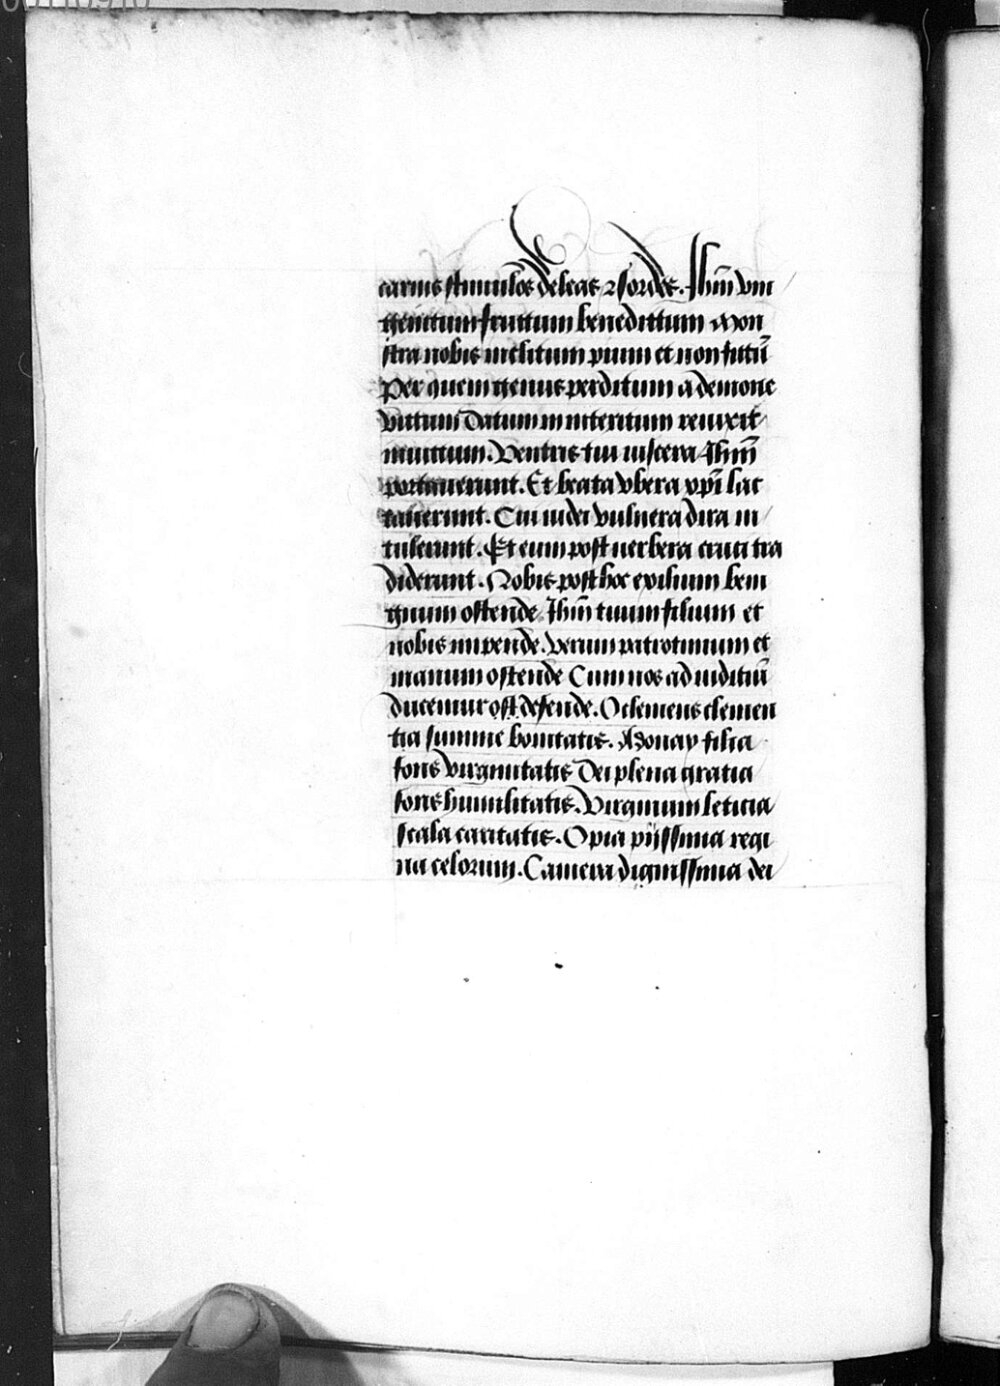 carnis stimulos deleas ⁊ sordes. Ihm̄ vni
genitum fructum benedictum Mon
stra nobis inclitum pium et non fictū
Per quem genus perditum a demone
victum Datum in interitum reuixit
inuictum. Ventris tui uiscera Ihm̄
portauerunt. Et beata vbera xp̄i lac
tauerunt. Cui iudei vulnera dira in
tulerunt. Et eum post uerbera cruci tra
diderunt. Nobis post hoc exilium beni
gnum ostende. Ihm̄ tuum filium et
nobis impende. Verum patrocinium et
manum ostende Cum nos ad iudiciū
ducemur ost defende. O clemens clemen
tia summe bonitatis. Adonay filia
fons virginitatis Dei plena gratia
fons humilitatis. Virginum leticia
scala caritatis. O pia pijssima regi
na celorum. Camera dignissima dei